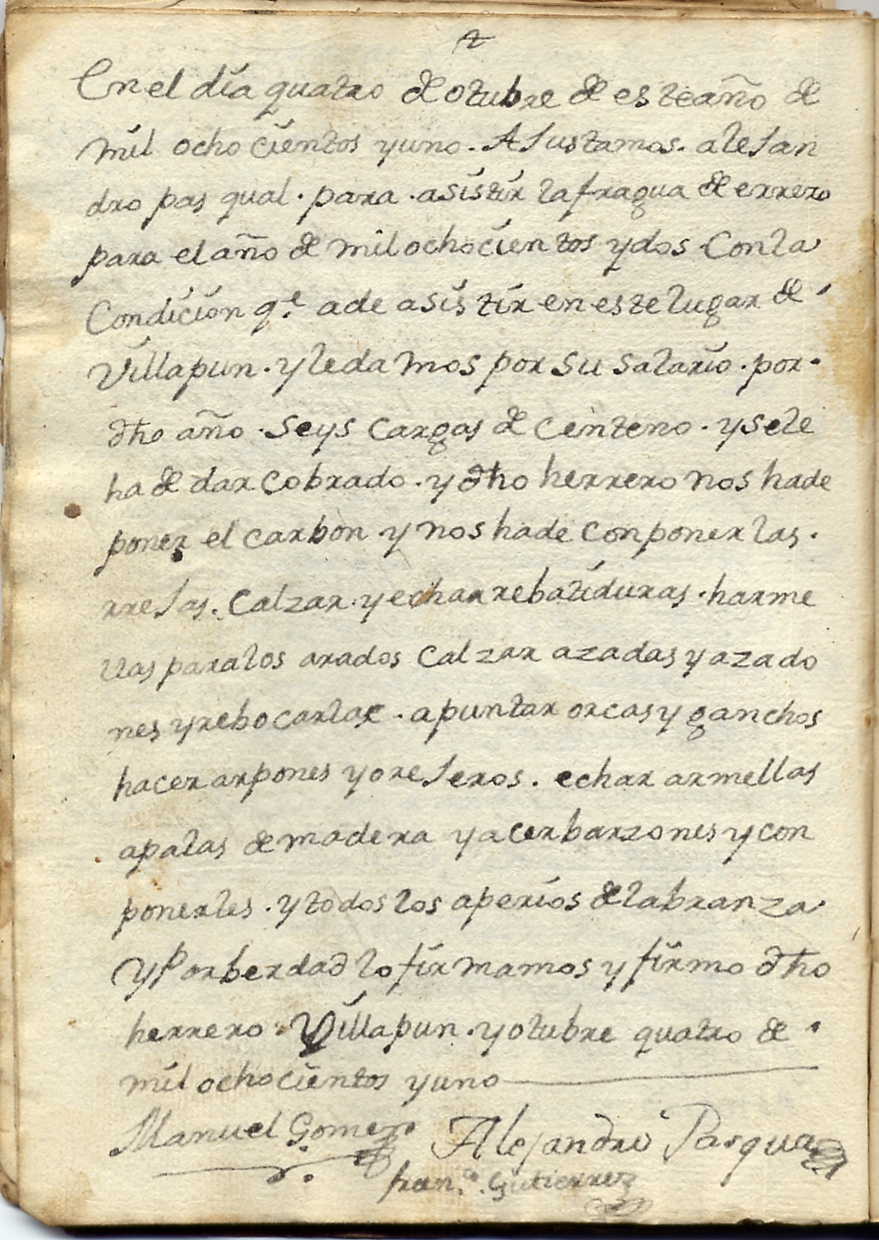 En el día quatro de otubre de este año de
mil ochocientos y uno. Ajustamos. alejan
dro pasqual. para. asistir la fragua de errero
para el año de mil ochocientos y dos. Con la
Condición q.e a de asistir en este lugar de
Villapun. y le damos por su salario. por.
dho año. seys cargas de centeno. y se le
ha de dar cobrado. y dho herrero nos ha de
poner el carbon y nos ha de conponer las.
rrejas. Calzar. y echar rebatiduras. harme
llas para los arados Calzar azadas y azado
nes y rebocarlas. apuntar orcas y ganchos
hacer arpones y orejeros. echar armellas
a palas de madera y acer barzones y con
ponerles. y todos los aperios de labranza
Y Por berdad lo firmamos y firmo dho
herrero. Villapun. y otubre quatro de
mil ochocientos y uno
Manuel Gomez Alejandro Pasqual
fran.co Gutierrez